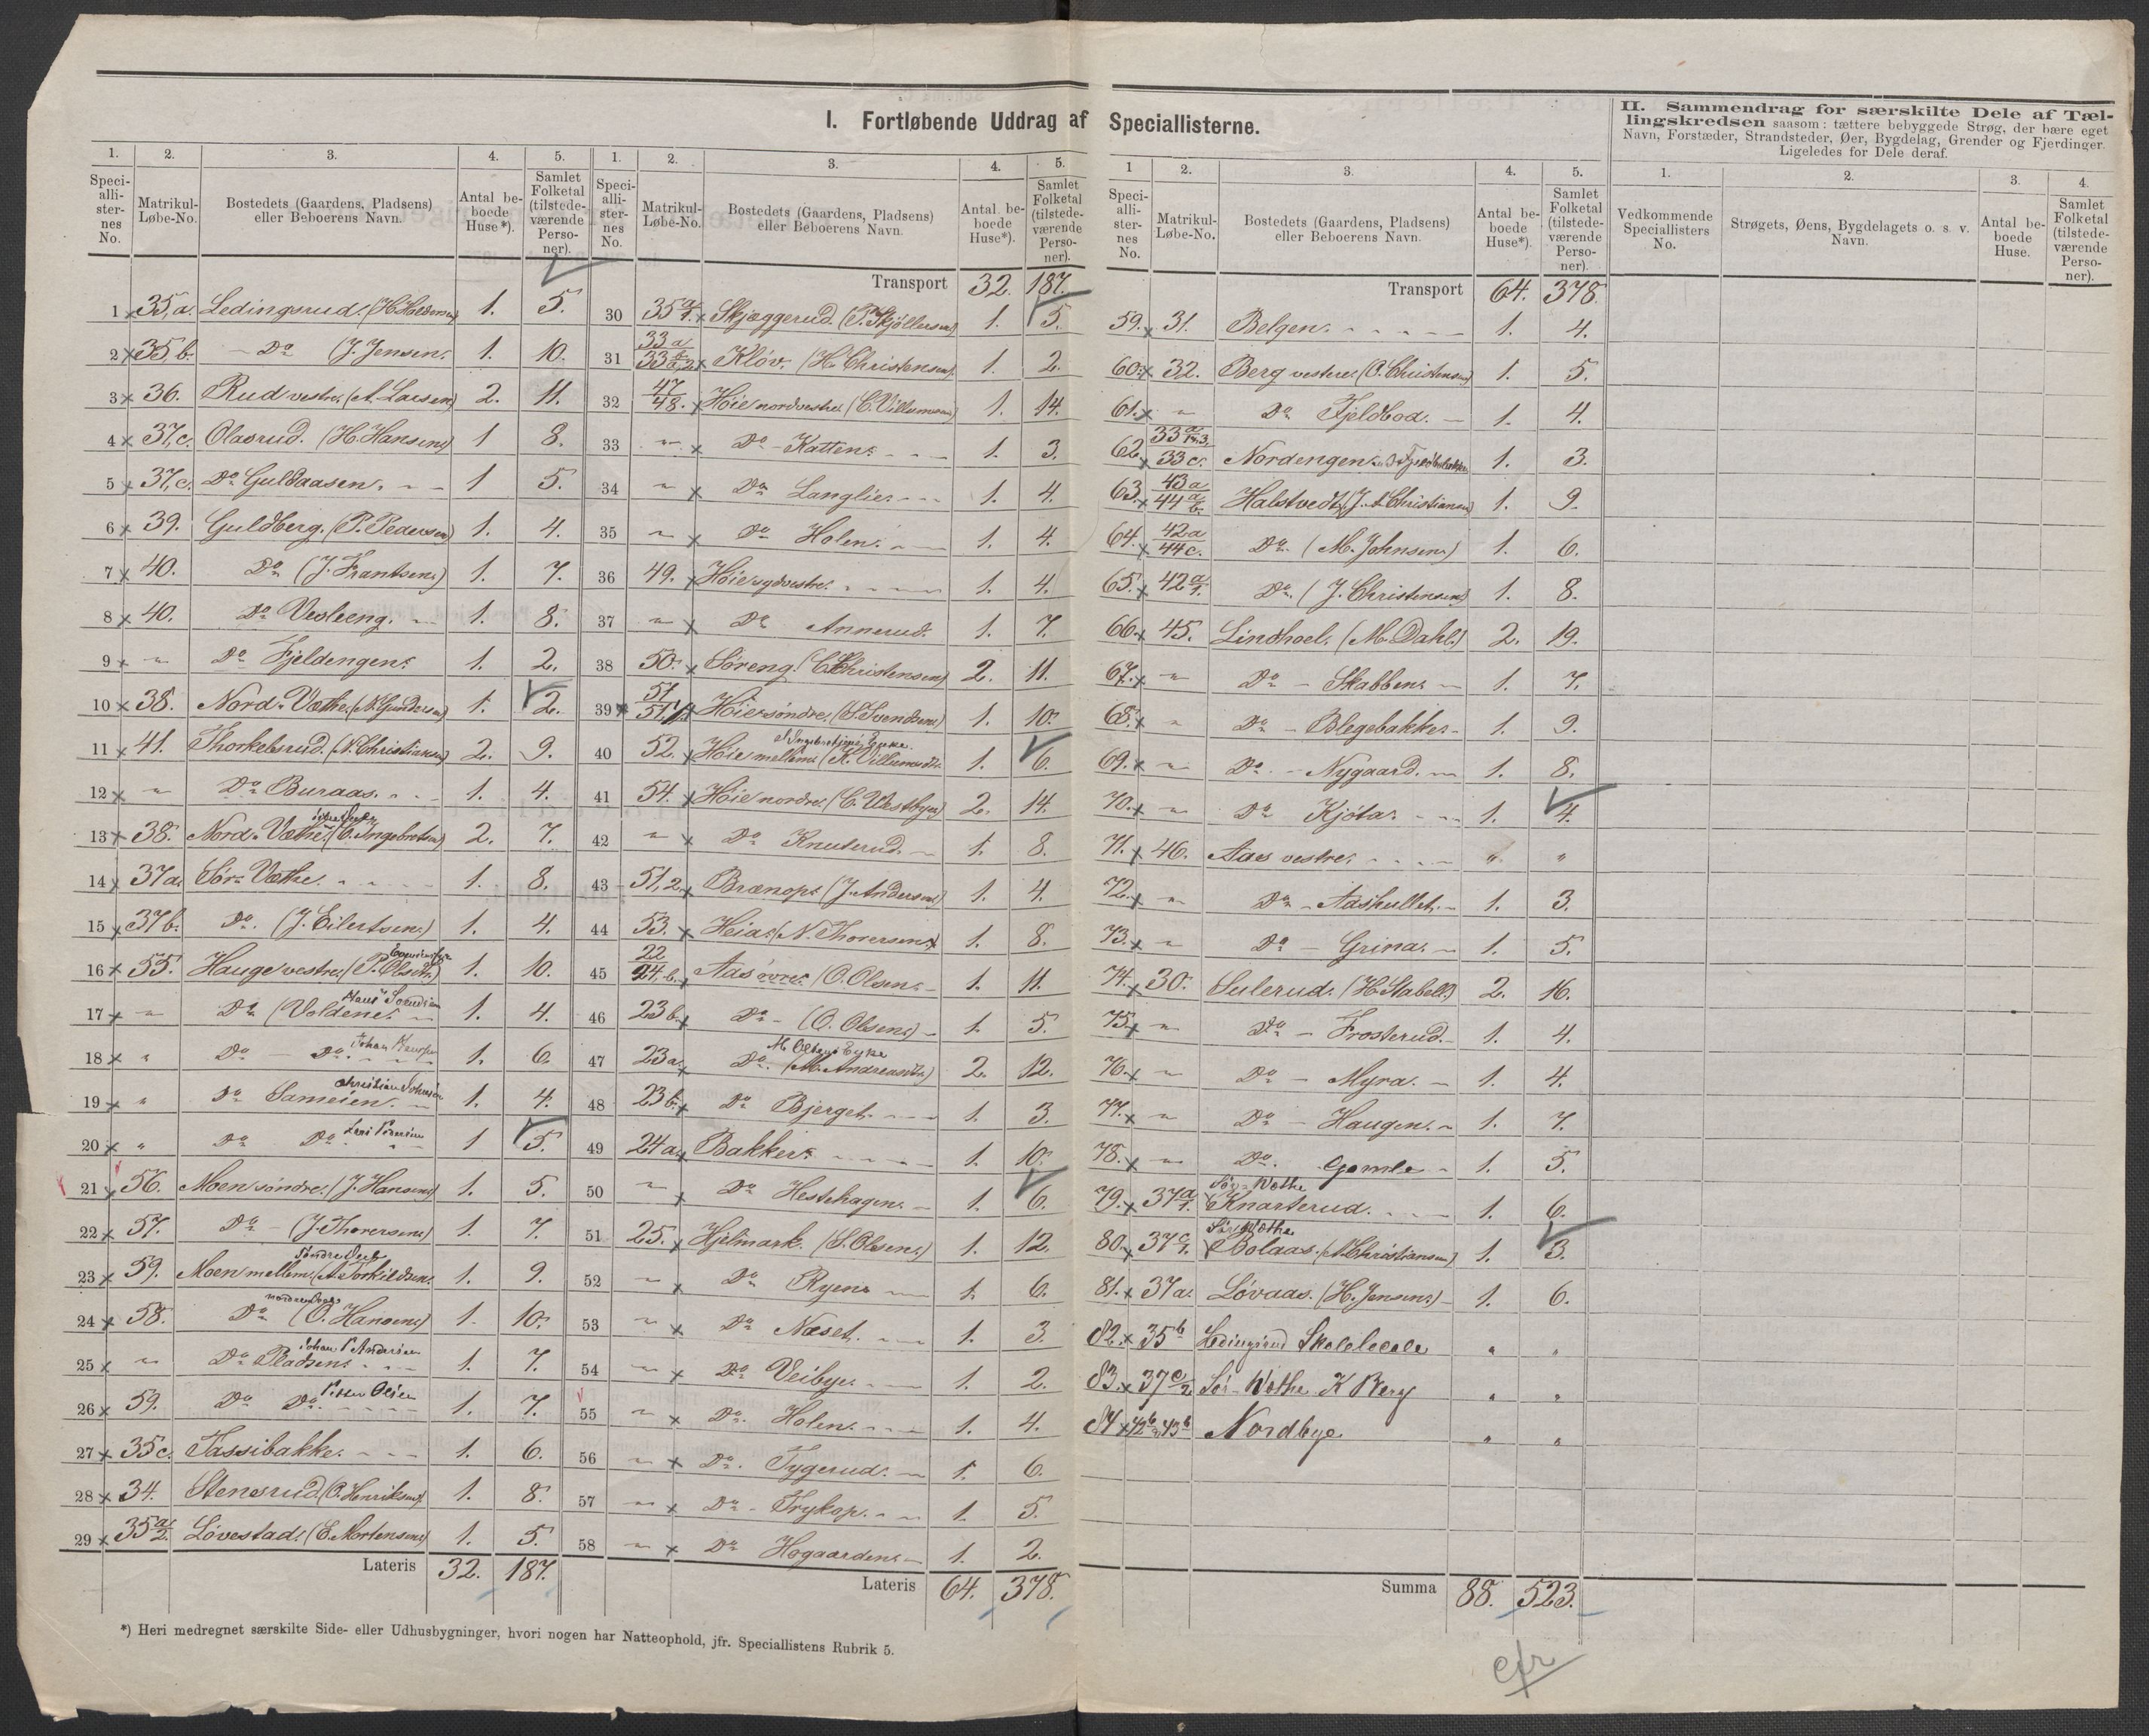 I. Fortløbende Uddrag af Speciallisterne.
1. 2. 3. 4. 5.
Speciallisternes No. Matrikul-Løbe-No. Bostedets (Gaardens, Pladsens) eller Beboerens Navn. Antal beboede Huse*). Samlet Folketal (tilstedeværende Personer).
1 x 35,a. Ledingsrud. 1. 5.
2 x 35,b. Do (J. Jensen. 1. 10.
3 x 36. Rud vestre. (A. Larsen) 2. 11.
4 x 37,c. Olasrud. (H. Hansen) 1 8.
5 x 37,c. Do Guldaasen. 1 5.
6 x 39. Guldberg. (P. Pedersen) 1. 4.
7 x 40. Do (J. Frantsen) 1. 7.
8 x 40. Do Vesleeng. 1. 8.
9 x " Do Fjeldengen. 1. 2.
10 x 38. Nord-Vœthe. (N. Gundersen) 1. 2.
11 x 41. Thorkelsrud. (N. Christiansen) 2. 9.
12 x " Do Buraas. 1. 4.
13 x 38. Nord-Vœthe. (O. Ingebretsen) 2. 7.
14 x 37a. Sør-Vœthe. 1. 8.
15 x 37b. Do. (J. Eilertsen) 1. 4.
16 x 55. Hauge vestre. (P. Olsen) 1. 10.
17 x " Do (Voldene. 1. 4.
18 x " Do - Do. Johan 1. 6.
19 x " Do Sameien. Christian Johnsen 1. 4.
20 x " Do Do 1 5.
21 x 56. Moen søndre. (J. Hansen) 1. 5.
22 x 57. Do - (J. Thoresen) 1. 7.
23 x 59. Moen mellem. (A. Torkildsen. 1. 9.
24 x 58. Do (O. Hansen) 1. 10.
25 x " Do Pladsen. Johan P Andersen 1. 7.
26 x 59. Do Do. Petter Olsen 1. 7.
27 x 35c. Tassibakke. 1. 6.
28 x 34. Stenesrud (O. Henriksen) 1. 8.
29 x 35 a/2. Løvestad. (E. Mortensen) 1. 5.
Lateris 32. 187.
*) Heri medregnet særskilte Side- eller Udhusbygninger, hvori nogen har Natteophold, jfr. Speciallistens Rubrik 5.
1. 2. 3. 4. 5.
Speciallisternes No. Matrikul-Løbe-No. Bostedets (Gaardens, Pladsens) eller Beboerens Navn. Antal beboede Huse*). Samlet Folketal (tilstedeværende Personer).
Transport 32. 187.
30 35 a/1. x Skjæggerud. 1. 5.
31 33a x Kløv. (H. Christensen) 1. 2.
32 47/48. x Høie nordvestre. (C. Villumsen) 1. 14.
33 " x Do - Katten. 1. 3.
34 " x Do Langlie. 1. 4.
35 " x Do Holen. 1. 4.
36 49. x Høie sydvestre. 1. 4.
37 " x Do Annerud. 1. 7.
38 50. x Søreng. (C. Christensen) 2. 11.
39 x Høie søndre. (S. Svendsen) 1. 10.
40 52. x Høie mellem. 1. 6.
41 54. x Høie nordre. (C. Westbye) 2. 14.
42 " x Do Knuterud. 1. 8.
43 51,2. x Brænop. (J. Andersen) 1. 4.
44 53. x Heia. (N. Thoresen) 1. 8.
45 22 / 24,b. Aas øvre. (O. Olsen. 1. 11.
46 23b. x Do - (O. Olsen) 1. 5.
47 23a. Do. 2. 12.
48 23b. x Do Bjerget. 1. 3.
49 24a. x Bakke. 1. 10.
50 " x Do Hestehagen. 1. 6.
51 25. x Hjelmark. (S. Olsen.) 1. 12.
52 " x Do Ryen. 1. 6.
53 " x Do Næset. 1. 3.
54 " x Do Veibye. 1. 2.
55 " x Do. Holen. 1. 4.
56 " x Do. Tygerud. 1. 6.
57 " x Do - Trykop. 1. 5.
58 " x Do Hogaarden. 1. 2.
Lateris 64. 378.
1 2. 3. 4. 5.
Speciallisternes No. Matrikul-Løbe-No. Bostedets (Gaardens, Pladsens) eller Beboerens Navn. Antal beboede Huse*). Samlet Folketal (tilstedeværende Personer).
Transport 64. 378.
59. x 31. Belgen. 1. 4.
60. x 32. Berg vestere (O. Christensen) 1. 5.
61. x " Do Fjeldbod. 1. 4.
62. x 33c. Nordengen. 1. 3.
63. x 43a / 44 a/b. Halstvedt. (J. A. Christiansen) 1. 9.
64. x 42a / 44c. Do. (M. Johnsen) 1. 6.
65. x 42 a/1. Do. (J. Christensen) 1. 8.
66. x 45. Lindhoel. (M. Dahl.) 2. 19.
67. x " Do - Skabben. 1. 7.
68. x " Do - Blegebakke. 1. 9.
69. x " Do. - Nygaard. 1. 8.
70. x " Do Kjøta. 1. 4.
71. x 46. Aas vestre. " "
72. x " Do - Aashullet. 1. 3.
73. x " Do - Grina. 1. 5.
74. x 30. Sulerud. (H. Stabell.) 2. 16.
75. x " Do - Frosterud. 1. 4.
76. x " Do - Myra. 1. 4.
77. x " Do - Haugen. 1. 7.
78. x " Do. Gamle 1. 5.
79. x 37 a/1. Sør-Wøthe Knarterud. 1. 6.
80. x 37 c/1. Sør Wøthe Bolaas. (A. Christiansen) 1. 3.
81. x 37a. Løvaas. (H. Jensen.) 1. 6.
82. x 35 b Ledingsrud Skolelocale " "
83. x 37 c/2 Sør-Wøthe K Berg " "
84 x 42 b 43 b Nordbye " "
Summa 88. 523.
cfr
II. Sammendrag for særskilte Dele af Tællingskredsen saasom: tættere bebyggede Strøg, der bære eget
Navn, Forstæder, Strandsteder, Øer, Bygdelag, Grender og Fjerdinger.
Ligeledes for Dele deraf.
1. 2. 3. 4.
Vedkommende Speciallisters No. Strøgets, Øens, Bygdelagets o. s. v. Navn. Antal beboede Huse. Samlet Folketal (tilstedeværende Personer).